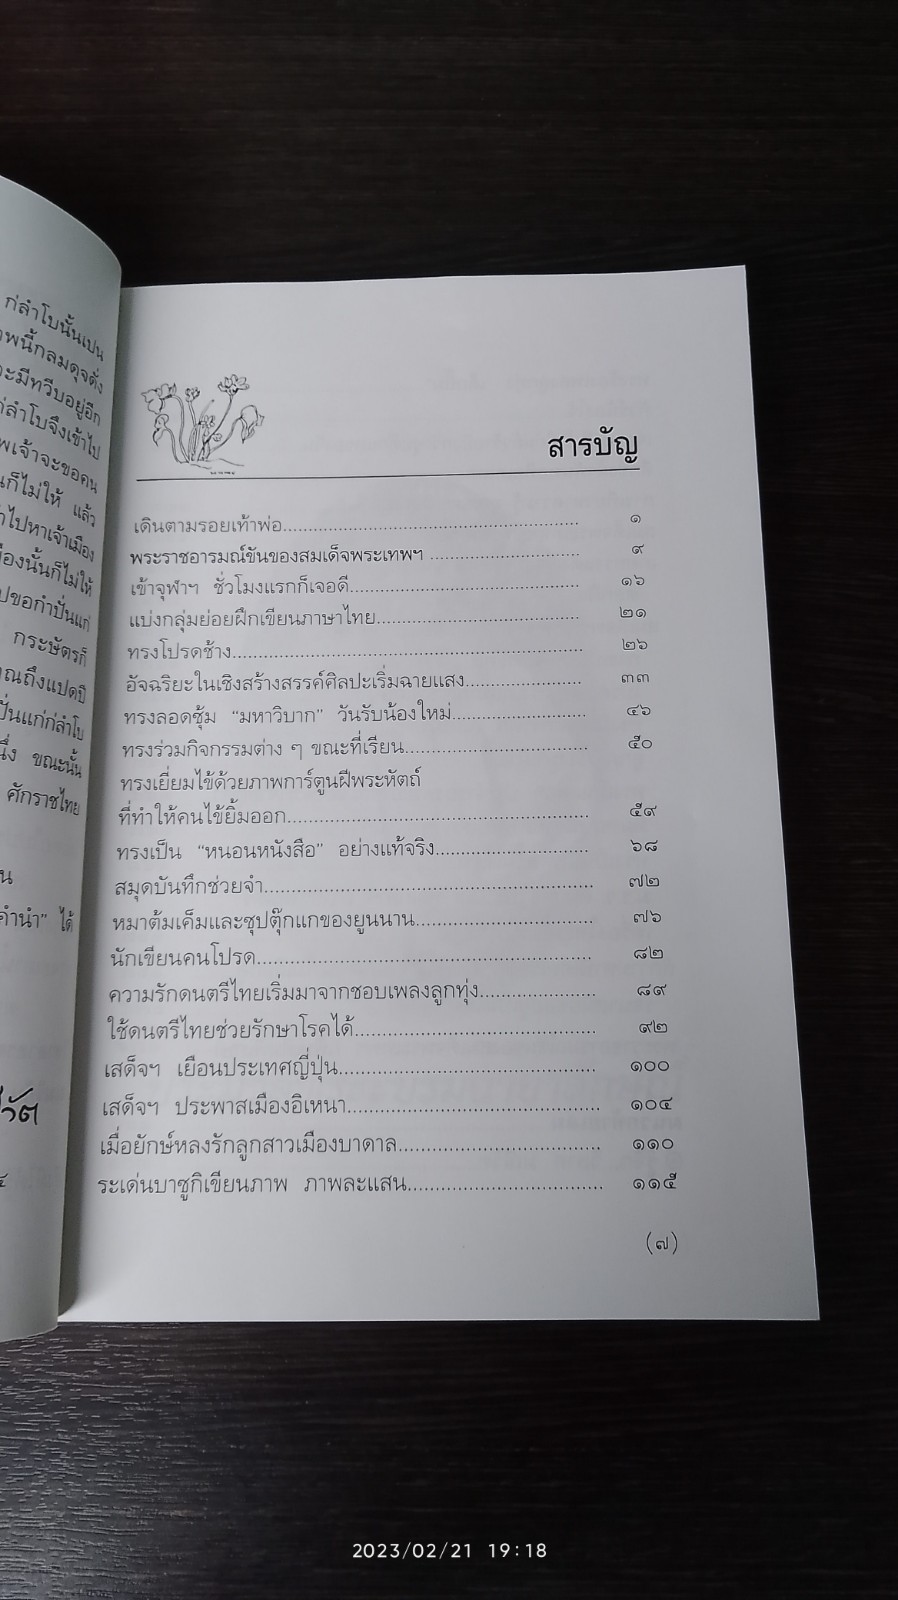 ก่ลำโบนั้นเปน
าพนี้กลมดุจดั่ง
าะมีทวีบอยู่อีก
ก่ลำโบจึงเข้าไป
พเจ้าจะขอคน
นก็ไม่ให้ แล้ว
าไปหาเจ้าเมือง
มืองนั้นก็ไม่ให้
ปขอกำปั่นแก่
กระษัตรก็
คุณถึงแปดปี
ปั่นแก่ก่ลำโบ
นึ่ง ขณะนั้น
ศักราชไทย
น
คำนำ” ได้
สารบัญ
เดินตามรอยเท้าพ่อ........ ๑
พระราชอารมณ์ขันของสมเด็จพระเทพฯ ........ ๙
เข้าจุฬาฯ ชั่วโมงแรกก็เจอดี........ ๑๖
แบ่งกลุ่มย่อยฝึกเขียนภาษาไทย........ ๒๑
ทรงโปรดช้าง........ ๒๖
อัจฉริยะในเชิงสร้างสรรค์ศิลปะเริ่มฉายแสง........ ๓๓
ทรงลอดซุ้ม “มหาวิบาก” วันรับน้องใหม่........ ๔๖
ทรงร่วมกิจกรรมต่าง ๆ ขณะที่เรียน........ ๕๐
ทรงเยี่ยมไข้ด้วยภาพการ์ตูนฝีพระหัตถ์
ที่ทำให้คนไข้ยิ้มออก........ ๕๙
ทรงเป็น “หนอนหนังสือ” อย่างแท้จริง........ ๖๘
สมุดบันทึกช่วยจำ........ ๗๒
หมาต้มเค็มและซุปตุ๊กแกของยูนนาน........ ๗๖
นักเขียนคนโปรด........ ๘๒
ความรักดนตรีไทยเริ่มมาจากชอบเพลงลูกทุ่ง........ ๘๙
ใช้ดนตรีไทยช่วยรักษาโรคได้........ ๙๒
เสด็จฯ เยือนประเทศญี่ปุ่น........ ๑๐๐
เสด็จฯ ประพาสเมืองอิเหนา........ ๑๐๔
เมื่อยักษ์หลงรักลูกสาวเมืองบาดาล........ ๑๑๐
ระเด่นบาซูกิเขียนภาพ ภาพละแสน........ ๑๑๕
(๗)
2023/02/21 19:18